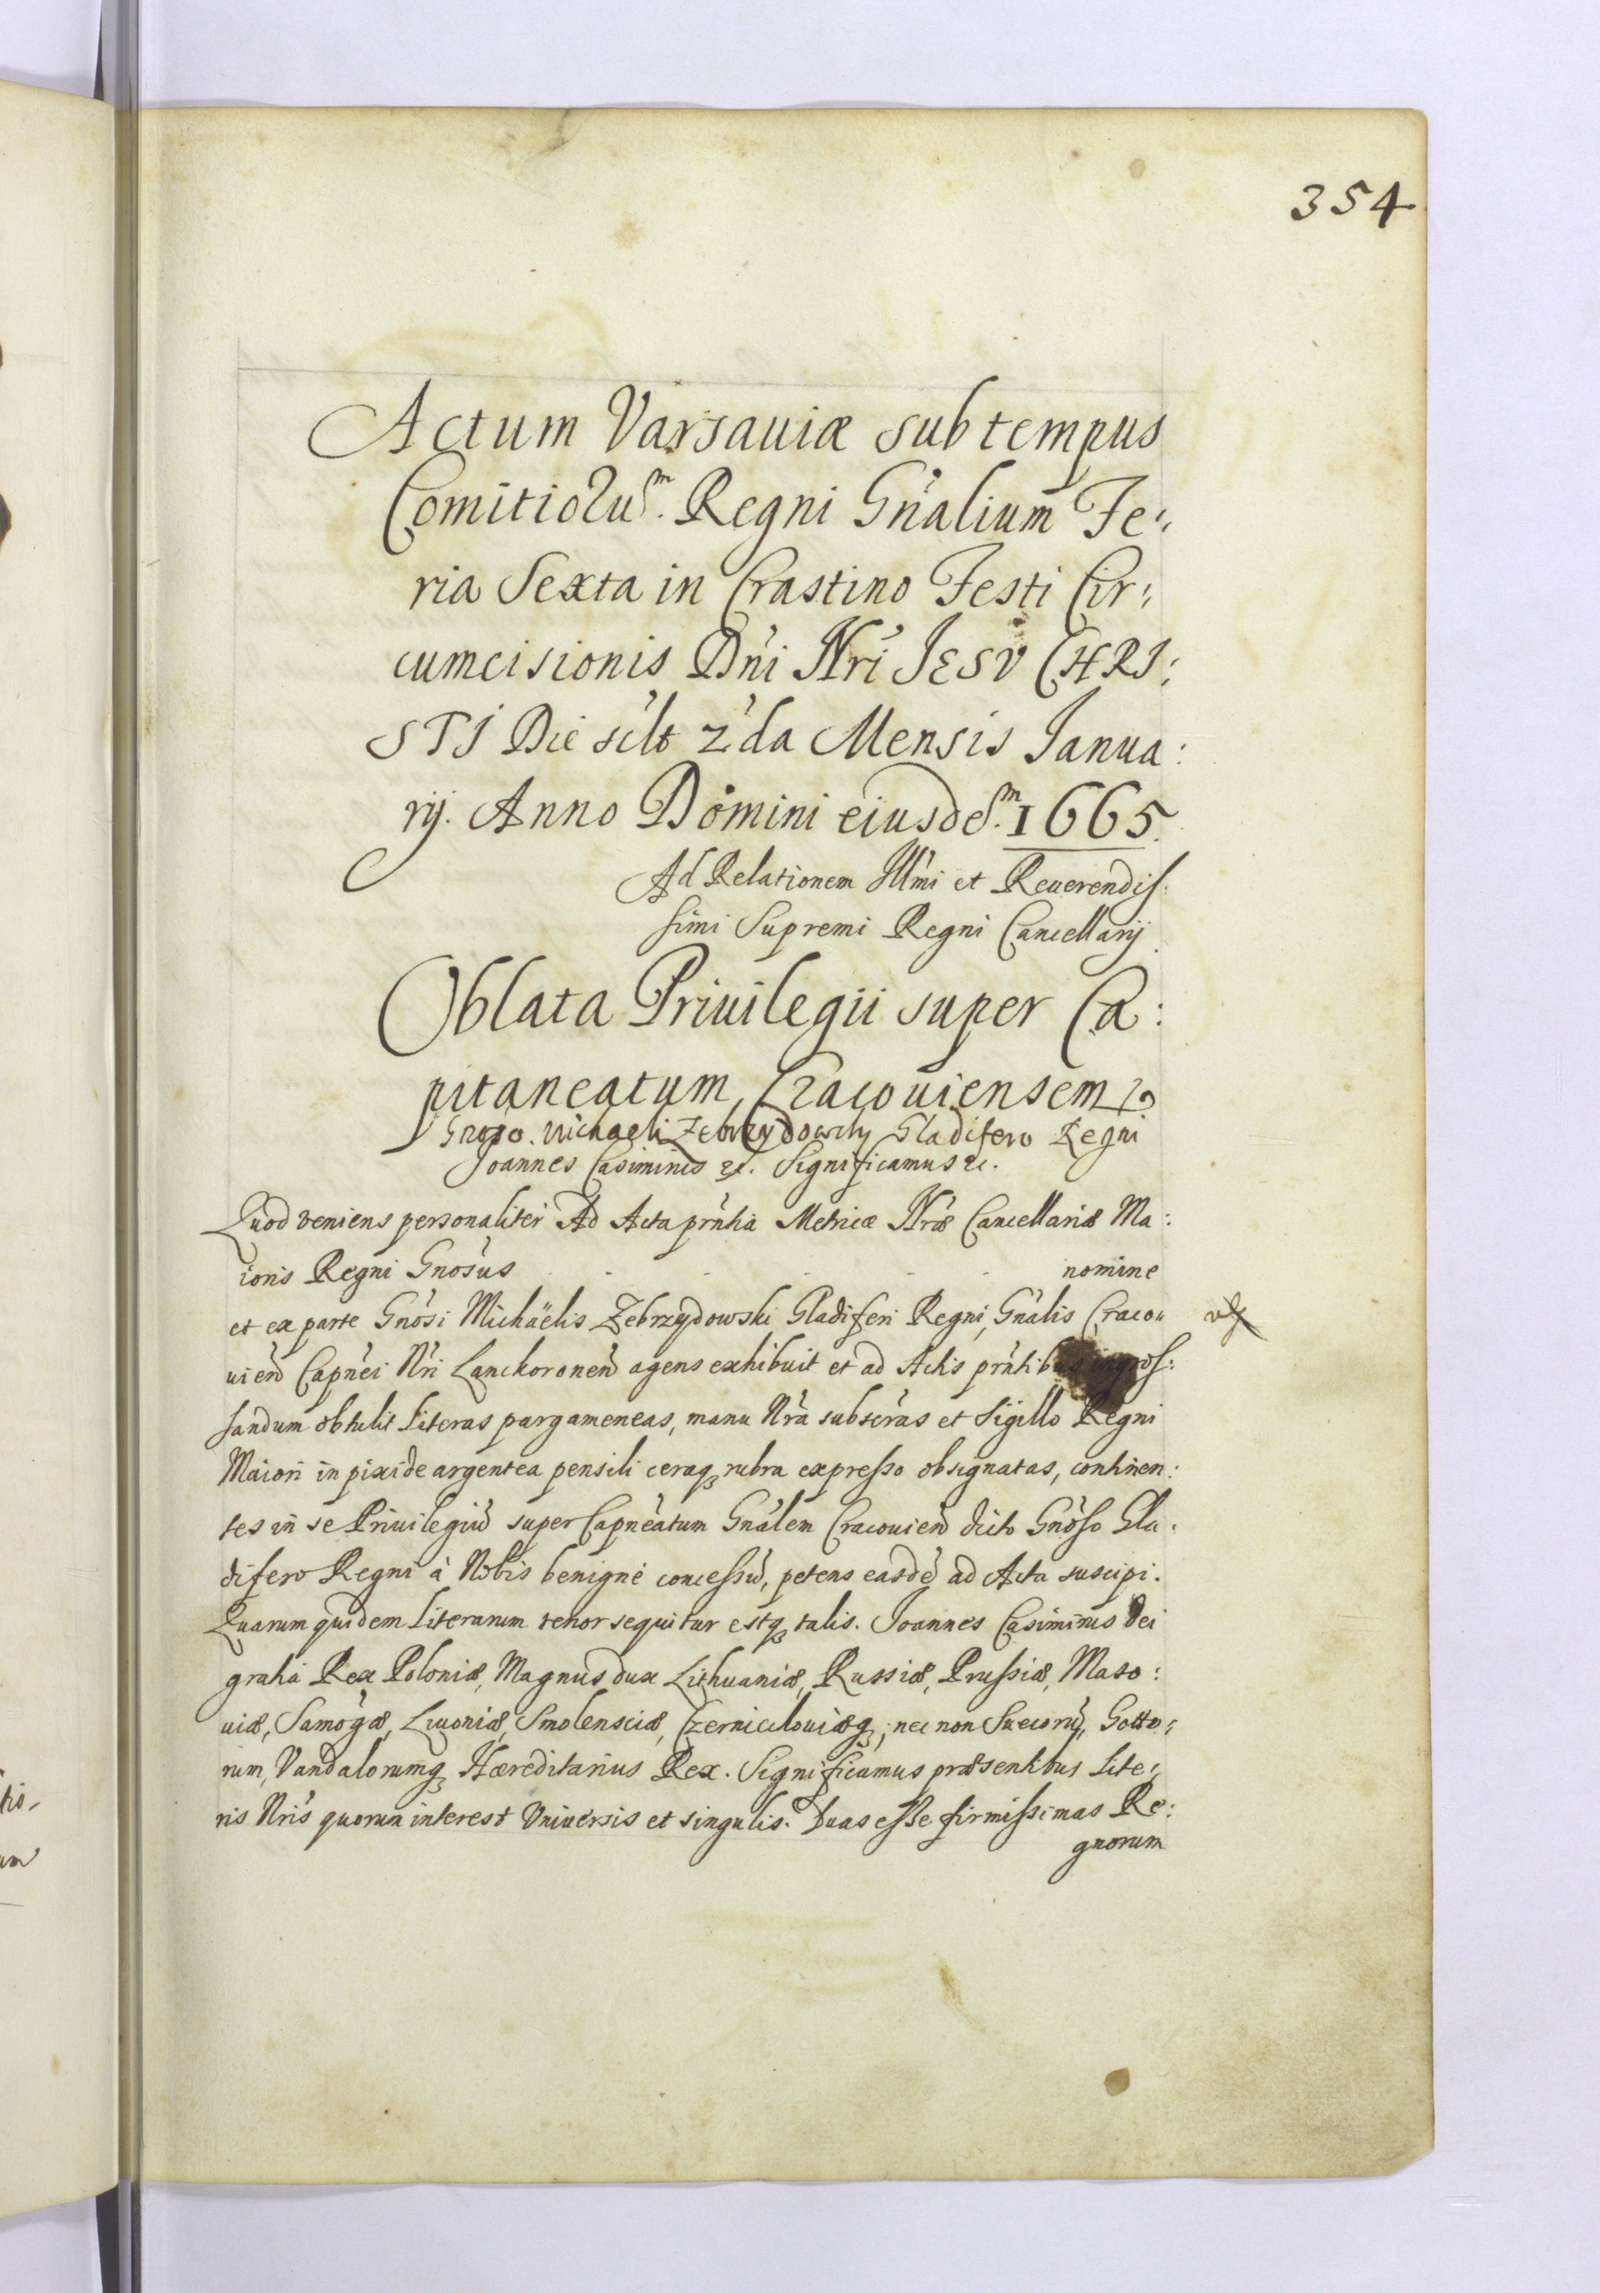 354
Actum Varsauiæ sub tempus
Comitiorum. Regni Gn̄alium Fe:
ria Sexta in Crastino Festi Cir:
cumcisionis Dn̄i Nr̄i JESV CHRI:
STI Die scilt 2da Mensis Janua:
rij. Anno Domini eiusdem. 1665.
Ad Relationem Illm̄i et Reuerendis:
simi Supremi Regni Cancellarij
Oblata Priuilegii super Ca:
pitaneatum Cracouiensem
Gnoso. Michaeli Zebrzydowsky Gladifero Regni
Joannes Casimirus etc. Significamus etc.
Quod veniens personaliter Ad Acta prn̄tia Metricæ Nr̄æ Cancellariæ Ma:
ioris Regni Gnōsus nomine
et ex parte Gnōsi Michäelis Zebrzydowski Gladiferi Regni, Gnālis Craco:
uien̄ Capn̄ei Nr̄i Lanckoronen̄ agens exhibuit et ad Actis prn̄tibus ingros:
sandum obtulit Literas pargameneas, manu Nr̄a subscr̄as et Sigillo Regni
Maiori in pixide argentea pensili ceraq rubra expresso obsignatas, continen:
tes in se Priuilegiū super Capnēatum Gnālem Cracouien̄ dicto Gnōso Gla:
difero Regni à Nobis benigne concessū, petens easdē ad Acta suscipi.
Quarum quidem Literarum tenor sequitur estq talis. Joannes Casimirus Dei
gratia Rex Poloniæ, Magnus dux Lithuaniæ, Russiæ, Prussiæ, Maso:
uiæ, Samōgæ, Liuoniæ, Smolensciæ, Czernichouiæq, nec non Suecorū, Gotto:
rum, Vandalorumq Hæreditarius Rex. Significamus præsentibus Lite:
ris Nris quorum interest Vniuersis et singulis. Duas esse firmissimas Re:
gnorum